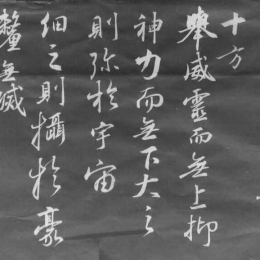 十方
舉威靈而無上抑
神力而無下大之
則弥於宇宙
細之則攝於豪
釐無滅